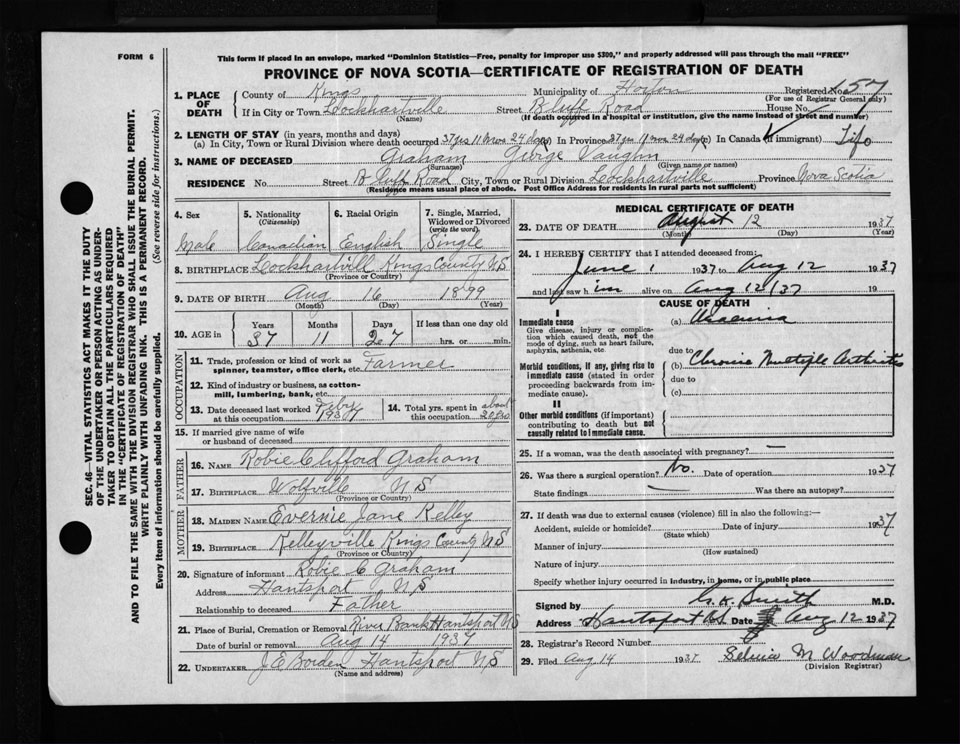 FORM 6
This form if placed in an envelope, marked "Dominion Statistics—Free, penalty for improper use $300," and properly addressed will pass through the mail "FREE"
PROVINCE OF NOVA SCOTIA—CERTIFICATE OF REGISTRATION OF DEATH
SEC. 46—VITAL STATISTICS ACT MAKES IT THE DUTY OF THE UNDERTAKER OR PERSON ACTING AS UNDERTAKER TO OBTAIN ALL THE PARTICULARS REQUIRED IN THE "CERTIFICATE OF REGISTRATION OF DEATH"
AND TO FILE THE SAME WITH THE DIVISION REGISTRAR WHO SHALL ISSUE THE BURIAL PERMIT.
WRITE PLAINLY WITH UNFADING INK. THIS IS A PERMANENT RECORD.
Every item of information should be carefully supplied. (See reverse side for instructions.)
1. PLACE OF DEATH County of Kings Municipality of Horton Registered No. 157
(For use of Registrar General only)
If in City or Town Lockhartville Street Bluff Road House No.
(Name) (If death occurred in a hospital or institution, give the name instead of street and number)
2. LENGTH OF STAY (in years, months and days)
(a) In City, Town or Rural Division where death occurred 37 yrs 11 mos 24 days In Province 37 yrs 11 mos 24 days In Canada (if immigrant) Life
3. NAME OF DECEASED Graham George Vaughn
(Surname) (Given name or names)
RESIDENCE No. Street Bluff Road City, Town or Rural Division Lockhartville Province Nova Scotia
(Residence means usual place of abode. Post Office Address for residents in rural parts not sufficient)
4. Sex 5. Nationality (Citizenship) 6. Racial Origin 7. Single, Married, Widowed or Divorced (write the word)
Male Canadian English Single
8. BIRTHPLACE Lockhartvill Kings County N S
(Province or Country)
9. DATE OF BIRTH Aug 16 1899
(Month) (Day) (Year)
10. AGE in Years Months Days If less than one day old
37 11 27 hrs. or min.
OCCUPATION
11. Trade, profession or kind of work as spinner, teamster, office clerk, etc. Farmer
12. Kind of industry or business, as cotton-mill, lumbering, bank, etc.
13. Date deceased last worked at this occupation 1937
14. Total yrs. spent in this occupation about 20 yrs
15. If married give name of wife or husband of deceased
FATHER
16. NAME Robie Clifford Graham
17. BIRTHPLACE Wolfville N S
(Province or Country)
MOTHER
18. MAIDEN NAME Evernie Jane Kelley
19. BIRTHPLACE Kelleyville Kings County N S
(Province or Country)
20. Signature of informant Robie C Graham
Address Hantsport N S
Relationship to deceased Father
21. Place of Burial, Cremation or Removal River Bank Hantsport N S
Date of burial or removal Aug 14 1937
22. UNDERTAKER J E Borden Hantsport N S
(Name and address)
MEDICAL CERTIFICATE OF DEATH
23. DATE OF DEATH August 12 1937
(Month) (Day) (Year)
24. I HEREBY CERTIFY that I attended deceased from:
June 1 1937 to Aug 12 1937
and last saw h im alive on Aug 12/37 19
CAUSE OF DEATH
I
Immediate cause (a) Uraemia
Give disease, injury or complication which caused death, not the mode of dying, such as heart failure, asphyxia, asthenia, etc
due to
Morbid conditions, if any, giving rise to immediate cause (stated in order proceeding backwards from immediate cause). (b) Chronic Multiple Arthritis
due to
(c)
II
Other morbid conditions (if important) contributing to death but not causally related to immediate cause.
25. If a woman, was the death associated with pregnancy? —
26. Was there a surgical operation? No. Date of operation 1937
State findings Was there an autopsy?
27. If death was due to external causes (violence) fill in also the following:—
Accident, suicide or homicide? Date of injury 1937
(State which)
Manner of injury
(How sustained)
Nature of injury
Specify whether injury occurred in industry, in home, or in public place
Signed by G. K. Smith M.D.
Address Hantsport N.S. Date Aug 12 1937
28. Registrar's Record Number
29. Filed Aug 14 1937 M Woodman
(Division Registrar)